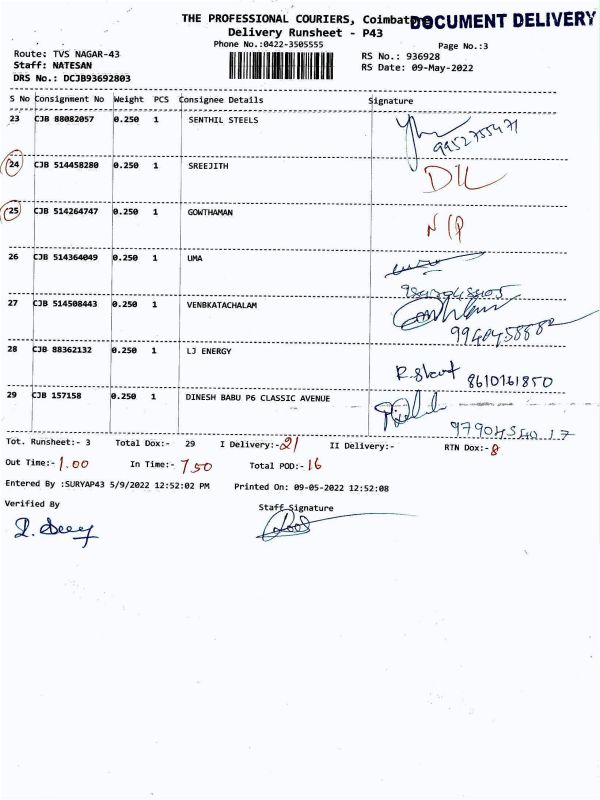 THE PROFESSIONAL COURIERS, Coimbatore
DOCUMENT DELIVERY
Delivery Runsheet - P43
Phone No.:0422-3505555
Page No.:3
Route: TVS NAGAR-43
RS No.: 936928
Staff: NATESAN
RS Date: 09-May-2022
DRS No.: DCJB93692803
S No Consignment No Weight PCS Consignee Details Signature
23 CJB 88082057 0.250 1 SENTHIL STEELS
9952755471
24 CJB 514458280 0.250 1 SREEJITH D/L
25 CJB 514264747 0.250 1 GOWTHAMAN N/P
26 CJB 514364049 0.250 1 UMA
27 CJB 514508443 0.250 1 VENBKATACHALAM
28 CJB 88362132 0.250 1 LJ ENERGY
8610161850
29 CJB 157158 0.250 1 DINESH BABU P6 CLASSIC AVENUE
Tot. Runsheet:- 3 Total Dox:- 29 I Delivery:-21 II Delivery:- RTN Dox:-8
Out Time:-1.00 In Time:-7 50 Total POD:-16
Entered By :SURYAP43 5/9/2022 12:52:02 PM Printed On: 09-05-2022 12:52:08
Verified By
Staff Signature